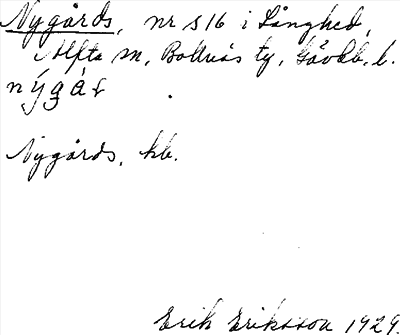 Nygårds, nr 516 i Långhed,
Alfta sn, Bollnäs tg, Gävlb. l.
nýgáʈ
Nygårds, kb.
Erik Eriksson 1929.